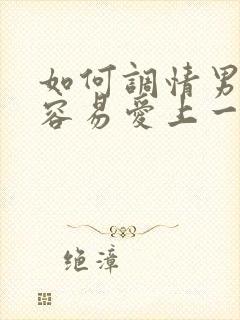 如何調情男
容易愛上一
绝漳